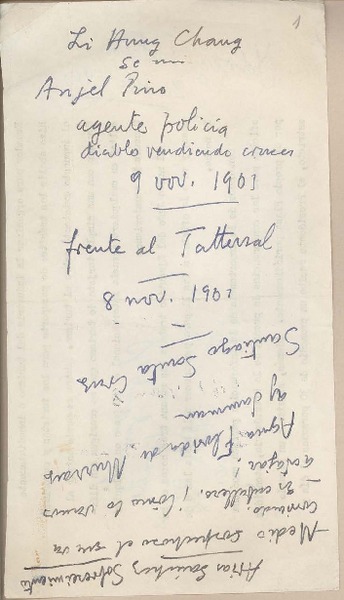 1
Li Hung Chang
se
Anjel Pino
agente policía
diablo vendiendo cruces
9 nov. 1901
frente al Tattersal
8 nov. 1901
Santiago Santa Cruz
ay
Agua Florida de Murray
atajar!
caballero ¡ Cómo lo vamos
comando:
Medio sospechoso el que va
Arias Sánchez Sobreseimiento